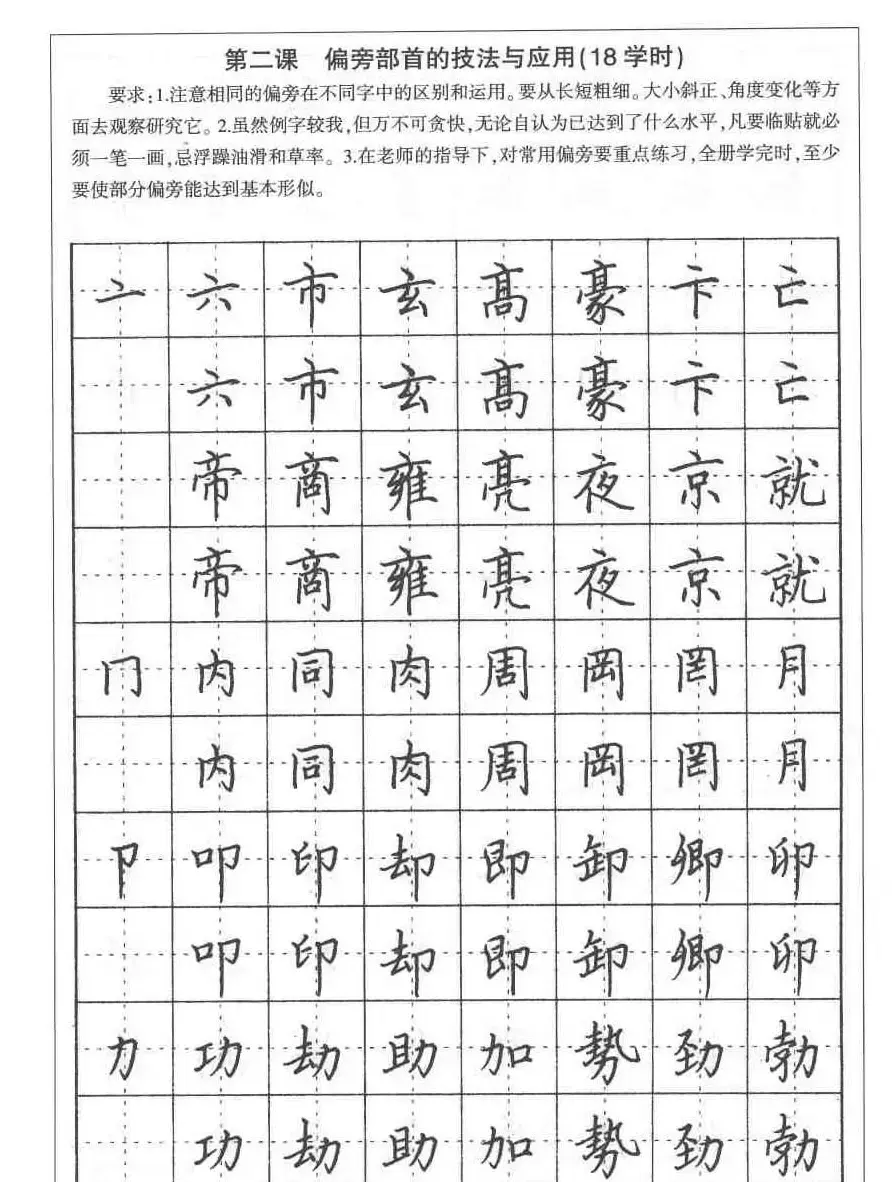 第二课 偏旁部首的技法与应用(18学时)
要求:1.注意相同的偏旁在不同字中的区别和运用。要从长短粗细。大小斜正、角度变化等方
面去观察研究它。2.虽然例字较我,但万不可贪快,无论自认为已达到了什么水平,凡要临贴就必
须一笔一画,忌浮躁油滑和草率。3.在老师的指导下,对常用偏旁要重点练习,全册学完时,至少
要使部分偏旁能达到基本形似。
亠 六 市 玄 髙 豪 卞 亡
六 市 玄 髙 豪 卞 亡
帝 商 雍 亮 夜 京 就
帝 商 雍 亮 夜 京 就
冂 内 同 肉 周 岡 罔 月
内 同 肉 周 岡 罔 月
卩 叩 印 却 即 卸 卿 卯
叩 印 却 即 卸 卿 卯
力 功 劫 助 加 勢 勁 勃
功 劫 助 加 勢 勁 勃